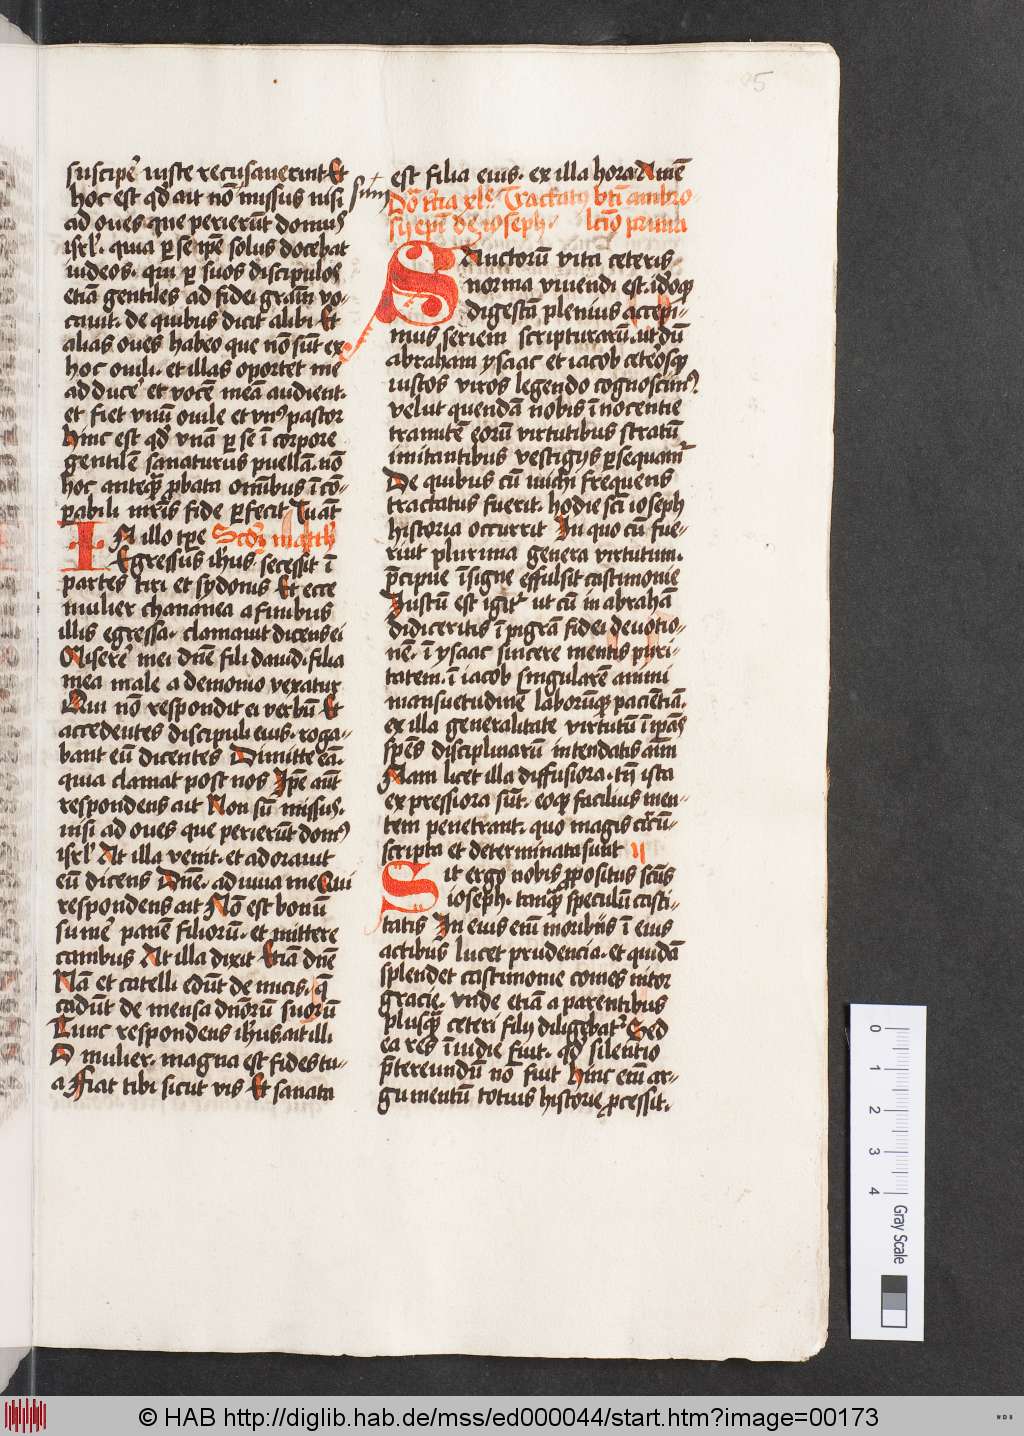 5
suscipe᷑ iuste recusauerint Et
hoc est qd̕ ait nō missus nisi
ad oues que perierūt domus
isrl̕. quia ꝑ semꝑe solus docebat
iudeos. qui ꝑ suos discipulos
etiā gentiles ad fidei grām vo-
cauit. de quibus dicit alibi Et
alias oues habeo que nō sūt ex
hoc ouili. et illas oportet me
adduce᷑ et vocē meā audient.
et fiet vnū ouile et vnꝰ pastor
Hinc est qd̕ vnā ꝑ se ī corpore
gentilē sanaturus puellam. nō
hoc anteqꝫ ꝓbata omībus ī cō-
ꝑabili mr̄is fide ꝑfecit
IN illo tꝑe Scd̕m math
Egressus ihus secessit ī
partes tiri et sydonis Et ecce
mulier chananea a finibus
illis egressa. clamauit dicens ei
Misere᷑ mei dnē fili dauid. filia
mea male a demonio vexatur
Qui nō respondit ei verbū Et
accedentes discipuli eius. roga-
bant eū dicentes Dimitte eā.
quia clamat post nos Ipē aūt
respondens ait Non sū missus.
nisi ad oues que perierūt domꝰ
isrl̕ At illa venit. et adorauit
eū dicens Dnē. adiuua me Qui
respondens ait Nō est bonū
sume᷑ panē filiorū. et mittere
canibus At illa dixit Etiā dnē
Nā et catelli edūt de micis. q̄
cadūt de mensa dnōrū suorū
Tunc respondens ihus. ait illi
O mulier. magna est fides tu-
a Fiat tibi sicut vis Et sanata
est filia eius. ex illa hora Amē
Dō t̄cia xle. Tractatꝰ bt̄i ambro-
sij epī de ioseph. lcīo prima
SAnctorū vita ceteris
norma viuendi est. Ideoqꝫ
digestā plenius accepi-
mus seriem scripturarū. ut dū
abraham ysaac et iacob ceterosqꝫ
iustos viros legendo cognoscimꝰ
velut quendā nobis īnocentie
tramitē eorū virtutibus stratū
imitantibus vestigijs ꝑsequam᷑
De quibus cū michi frequens
tractatus fuerit. hodie scī ioseph
historia occurrit In quo cū fue-
rint plurima genera virtutum.
p̄cipue īsigne effulsit castimonie
Iustū est igit᷑ ut cū in abrahā
didiceritis īpigrā fidei deuotio-
nē. ī ysaac sincere mentis puri-
tatem. ī iacob singularē animi
mansuetudinē laborūqꝫ paciētiā.
ex illa generalitate virtutū ī ipās
spēs disciplinarū intendatis aīm
Nam licet illa diffusiora. tn̄ ista
expressiora sūt. eoqꝫ facilius men-
tem penetrant. quo magis circū-
scripta et determinata sunt ij
Sit ergo nobis ꝓpositus scūs
ioseph. tanqꝫ speculū casti-
tatis In eius enī moribus ī eius
actibus lucet prudencia. et quidā
splendet castimonie comes nitor
gracie. vnde etiā a parentibus
plusqꝫ ceteri filij diligebat᷑ Sed
ea res īuidie fuit. qd̕ silentio
p̄tereundū nō fuit Hinc enī ar-
gumentū totius historie ꝓcessit.
0
1
2
3
4
Gray Scale
© HAB http://diglib.hab.de/mss/ed000044/start.htm?image=00173